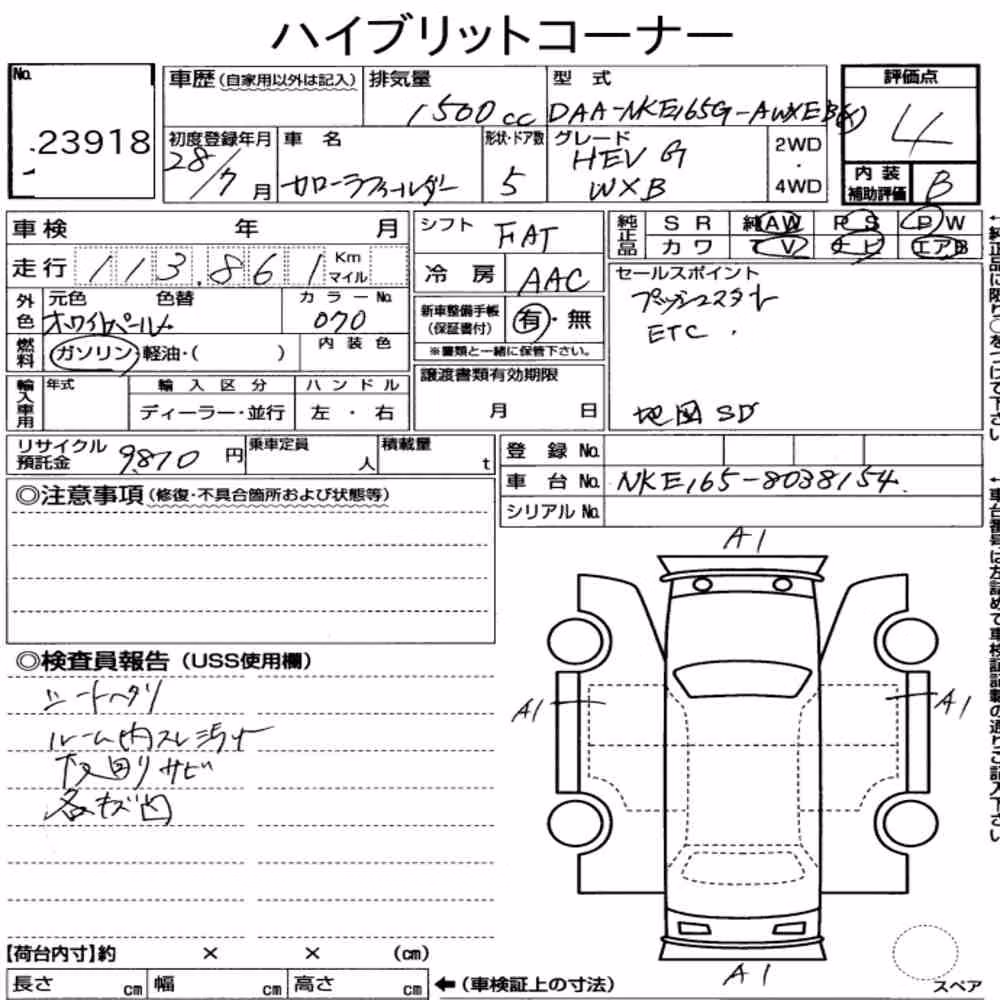 ハイブリットコーナー
No.
23918
車歴(自家用以外は記入)
排気量
1500cc
型式
DAA-NKE165G-AWXEB(X)
評価点
4
初度登録年月
28/7月
車名
カローラフィールダー
形状・ドア数
5
グレード
HEV G
WXB
2WD
・
4WD
内装
補助評価
B
車検 年 月
シフト
FAT
純正品
SR 純AW PS PW
カワ TV ナビ エアB
走行 113,861 Km マイル
冷房
AAC
セールスポイント
プッシュスタート
ETC.
地図SD
外色
元色 色替
ホワイトパールM
カラーNo.
070
新車整備手帳
(保証書付)
有・無
※書類と一緒に保管下さい。
燃料
ガソリン・軽油・( )
内装色
譲渡書類有効期限
月 日
輸入車用
年式
輸入区分
ディーラー・並行
ハンドル
左・右
リサイクル
預託金
9,870円
乗車定員
人
積載量
t
登録No.
車台No.
NKE165-8038154
シリアルNo.
◎注意事項(修復・不具合箇所および状態等)
◎検査員報告(USS使用欄)
シートヘタリ
ルーム内スレ汚れ
下回りサビ
各キズ凹
A1
A1
A1
A1
スペア
【荷台内寸】約 × × (cm)
長さ cm 幅 cm 高さ cm
←(車検証上の寸法)
↑純正品に限り○をつけて下さい
↑車台番号は左詰めで車検証記載の通りご記入下さい